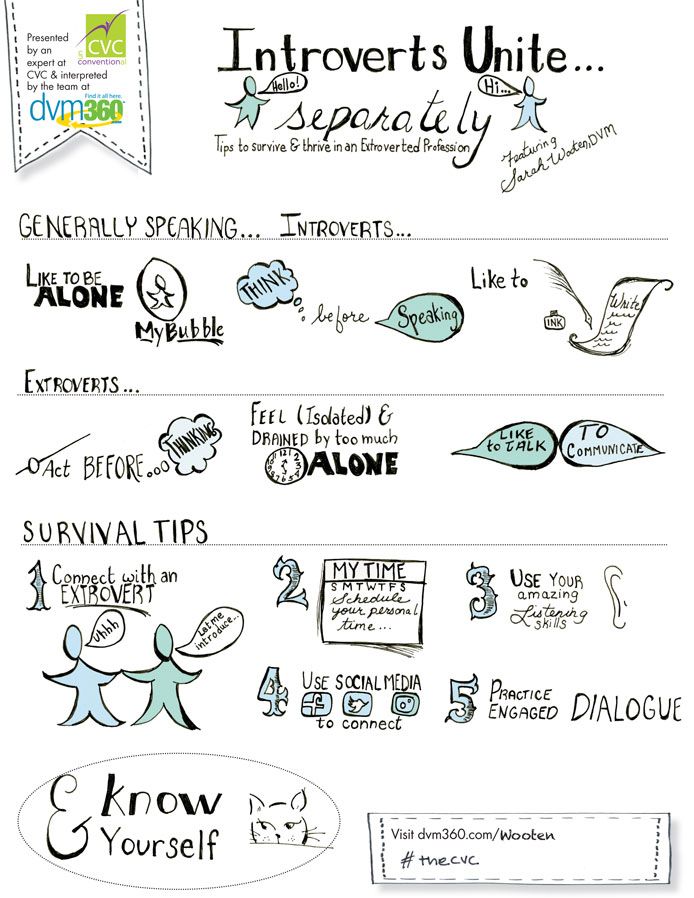 Presented
by an
expert at
CVC & interpreted
by the team at
un
CVC
conventional
Find it all here.
dvm360
Introverts Unite...
Hello!
Hi...
separately
Tips to survive & thrive in an Extroverted Profession
Featuring
Sarah Wooten, DVM
GENERALLY SPEAKING... INTROVERTS...
LIKE TO BE
ALONE
My Bubble
THINK
before
Speaking
Like to
INK
Write
EXTROVERTS...
Act BEFORE...
THINKING
FEEL (Isolated) &
DRAINED by too much
ALONE
LIKE
to TALK
TO
COMMUNICATE
SURVIVAL TIPS
1 Connect with an
EXTROVERT
uhhh
Let me
introduce...
2
MY TIME
S M T W T F S
Schedule
your personal
time...
3 USE YOUR
amazing
Listening
skills
4 USE SOCIAL MEDIA
to connect
5 PRACTICE
ENGAGED DIALOGUE
& know
Yourself
Visit dvm360.com/Wooten
#thecvc